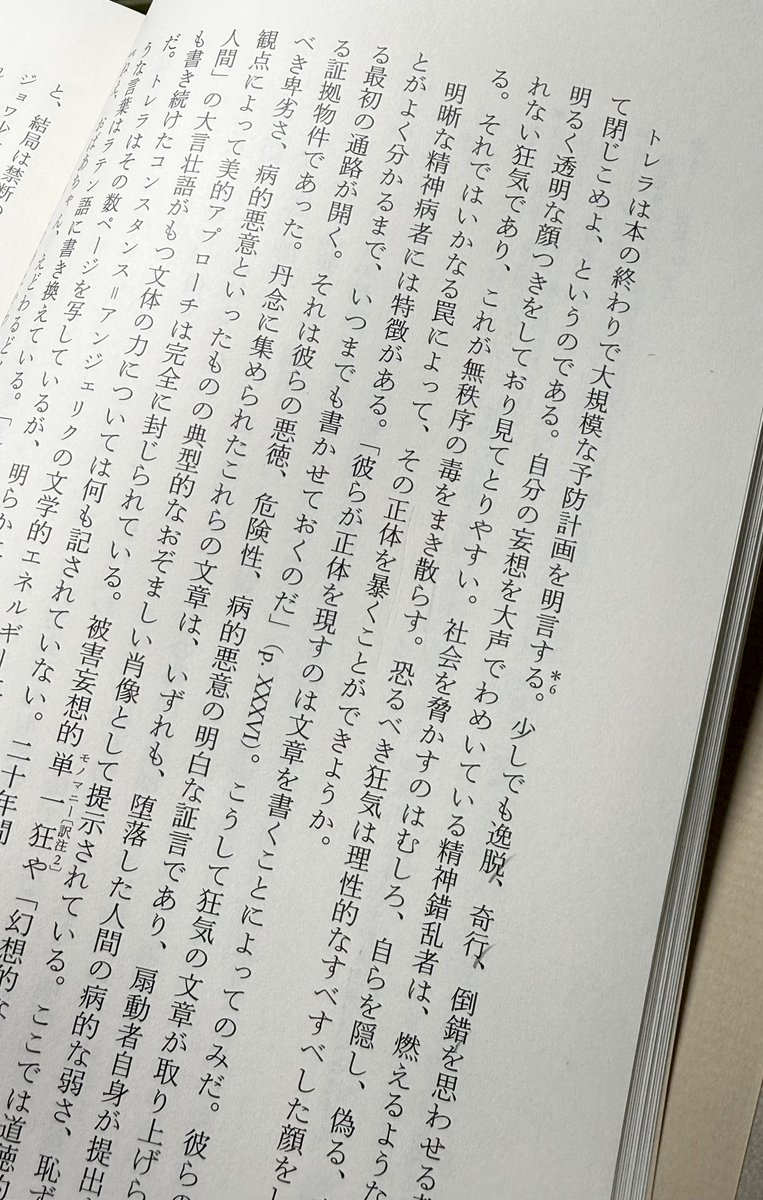 トレラは本の終わりで大規模な予防計画を明言する。*6 少しでも逸脱、奇行、倒錯を思わせる
て閉じこめよ、というのである。自分の妄想を大声でわめいている精神錯乱者は、燃えるような
明るく透明な顔つきをしており見てとりやすい。社会を脅かすのはむしろ、自らを隠し、偽る、
れない狂気であり、これが無秩序の毒をまき散らす。恐るべき狂気は理性的なすべすべした顔をし
る。それではいかなる罠によって、その正体を暴くことができようか。
明晰な精神病者には特徴がある。「彼らが正体を現すのは文章を書くことによってのみだ。彼らの
とがよく分かるまで、いつまでも書かせておくのだ」(p. XXXVI)。こうして狂気の文章が取り上げら
る最初の通路が開く。それは彼らの悪徳、危険性、病的悪意の明白な証言であり、扇動者自身が提出
る証拠物件であった。丹念に集められたこれらの文章は、いずれも、堕落した人間の病的な弱さ、恥ず
べき卑劣さ、病的悪意といったものの典型的なおぞましい肖像として提示されている。ここでは道徳的
観点によって美的アプローチは完全に封じられている。被害妄想的単一狂モノマニー[訳注2]や「幻想的な
人間」の大言壮語がもつ文体の力については何も記されていない。二十年間
も書き続けたコンスタンス＝アンジェリクの文学的エネルギーに
だ。トレラはその数ページを写しているが、明らかに
うな言葉はラテン語に書き換えている。「
おばあちゃん、えどわるど
と、結局は禁断の
ジョワ